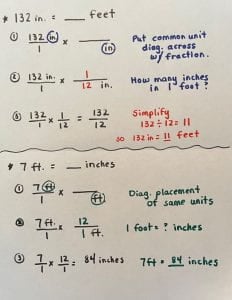 * 132 in. = ___ feet
① 132 in. / 1 × ___ / in. Put common unit diag. across w/ fraction.
② 132 in. / 1 × 1 / 12 in. How many inches in 1 foot?
③ 132 / 1 × 1 / 12 = 132 / 12 Simplify
132 ÷ 12 = 11
so 132 in = 11 feet
* 7 ft. = ___ inches
① 7 ft / 1 × ___ / ft. Diag. placement of same units
② 7 ft. / 1 × 12 / 1 ft. 1 foot = ? inches
③ 7 / 1 × 12 / 1 = 84 inches 7ft = 84 inches